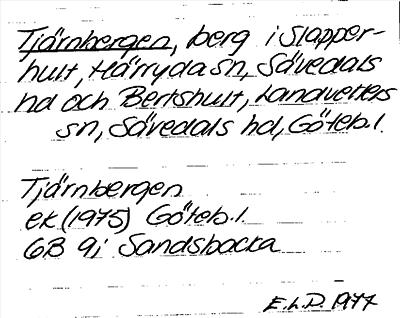 Tjärnbergen, berg i Slapper-
hult, Härryda sn, Sävedals
hd och Bertshult, Landvetters
sn, Sävedals hd, Göteb.l.
Tjärnbergen
ek (1975) Göteb.l.
6B 9i Sandsbacka
E.L.D. 1977